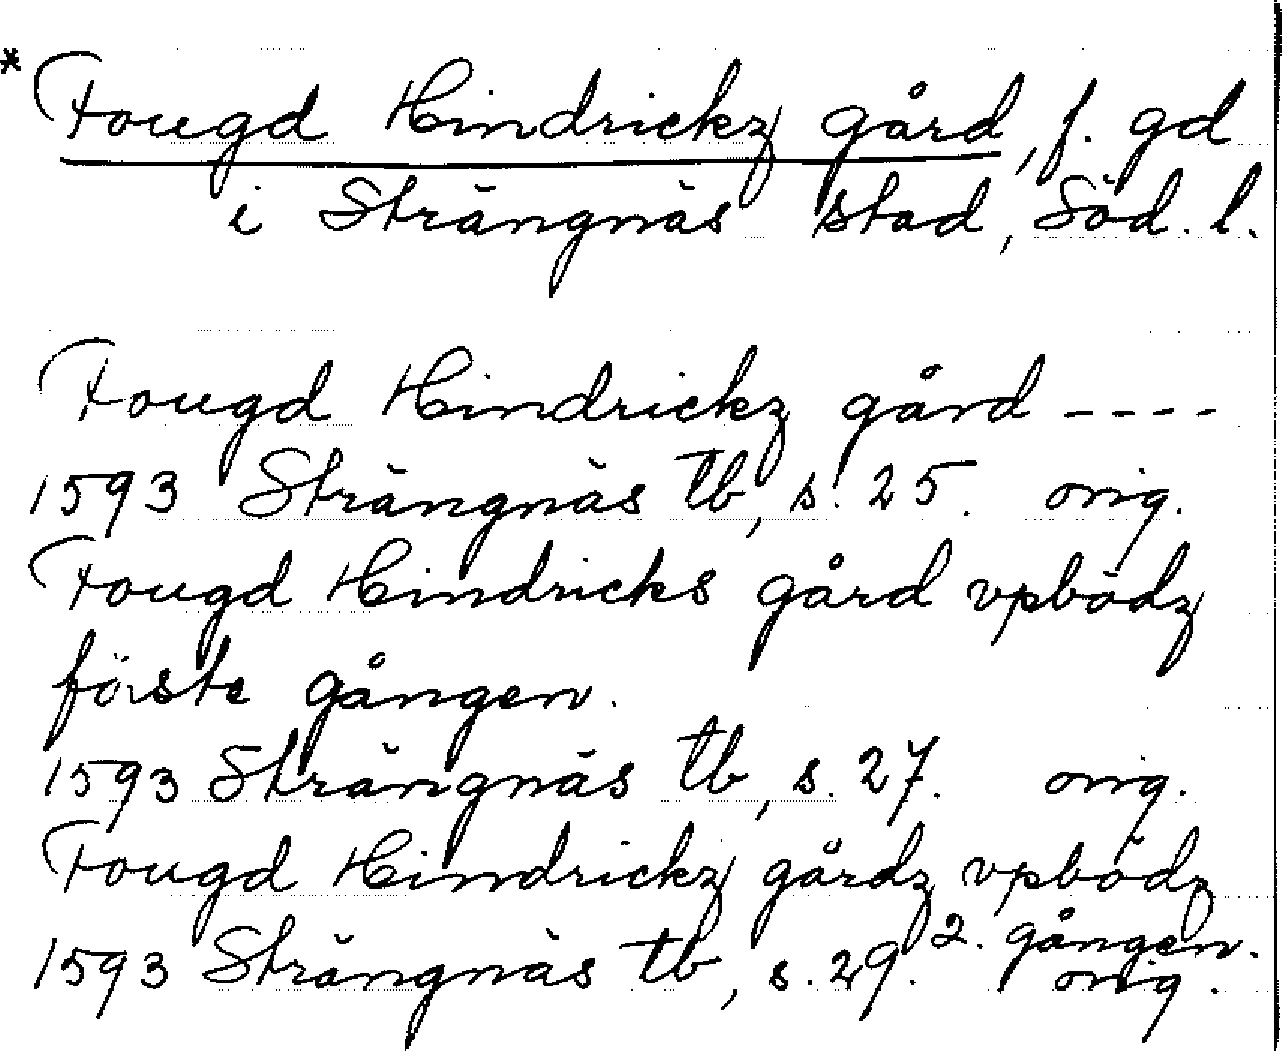 * Fougd Hindrickz gård, f. gd
i Strängnäs stad, Söd. l.
Fougd Hindrickz gård ----
1593 Strängnäs tb, s. 25. orig.
Fougd Hindricks gård vpbödz
förste gången.
1593 Strängnäs tb, s. 27. orig.
Fougd Hindrickz gårdz vpbödz
2. gången.
1593 Strängnäs tb, s. 29. orig.